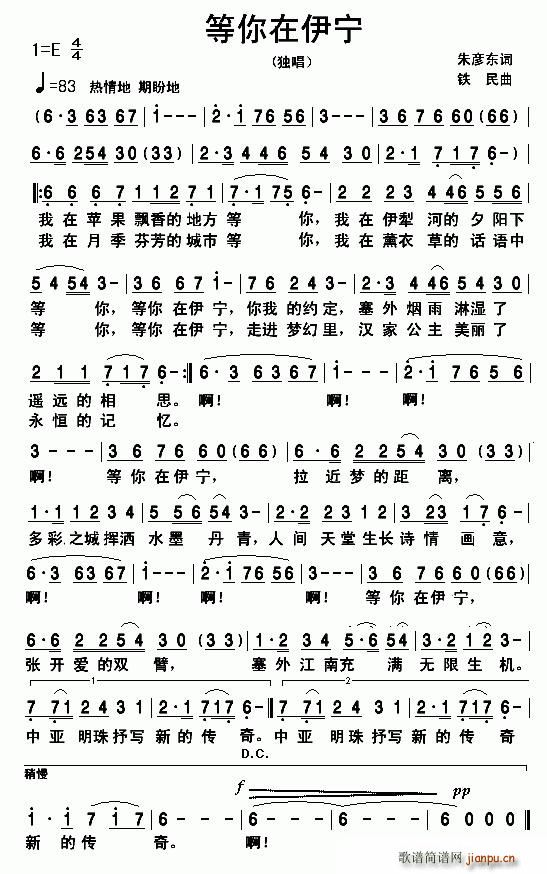 等你在伊宁
1=E 4/4
（独唱）
朱彦东词
铁 民曲
♩=83 热情地 期盼地
(6·3 63 67 | i - - - | 2·i 76 56 | 3 - - - |
6·6 254 30 (33) | 2·3 446 54 30 | 2·1 7 176 - )
‖: 6 6 6 7 11271 | 7·175 6 - | 2 2 2 3 4 46 556
我在苹果飘香的地方等 你，我在伊犁 河的夕阳下
我在月季芬芳的城市等 你，我在薰衣 草的话语中
54 54 3 - | 36 67 6 - | 76 24 3 - | 2·2 446 54 54 3
等 你，等你在伊宁，你我的约定，塞外烟雨 淋湿了
等 你，等你在伊宁，走进梦幻里，汉家公主 美丽了
2 1 1 7 17 6 - :‖ 6·3 63 67 | i - - - | 2·i 76 56 |
遥远的相 思。啊！ 啊！ 啊！
永恒的记 忆。
3 - - - | 36 76 60 (66) | 6·6 2254 30 (33) |
啊！ 等你在伊宁， 拉近梦的距 离，
1·1 1234 | 5 56 54 3 - | 2·2 2312 | 3 23 17 6 - |
多彩之城挥洒 水墨 丹青，人间 天堂生长诗情 画意，
6·3 63 67 | i - - - | 2·i 76 56 | 3 - - - | 36 76 60 (66) |
啊！ 啊！ 啊！ 啊！ 等你在伊宁，
6·6 2254 30 (33) | 1·2 324 5·6 54 | 3·3 12 3 - |
张开爱的双 臂， 塞外江南充 满 无限生机。
1 2
7 71 243 1 | 2 17 6 - :‖ 7 71 243 1 | 2 17 6 - |
中亚 明珠抒写 新的传 奇。中亚 明珠抒写 新的传 奇
D.C.
稍慢
f pp
i·i 7 i 7 | 6 - - - | 6 - - - | 6 - - - | 6000 ‖
新的传 奇。 啊！
歌谱简谱网
jianpu.cn